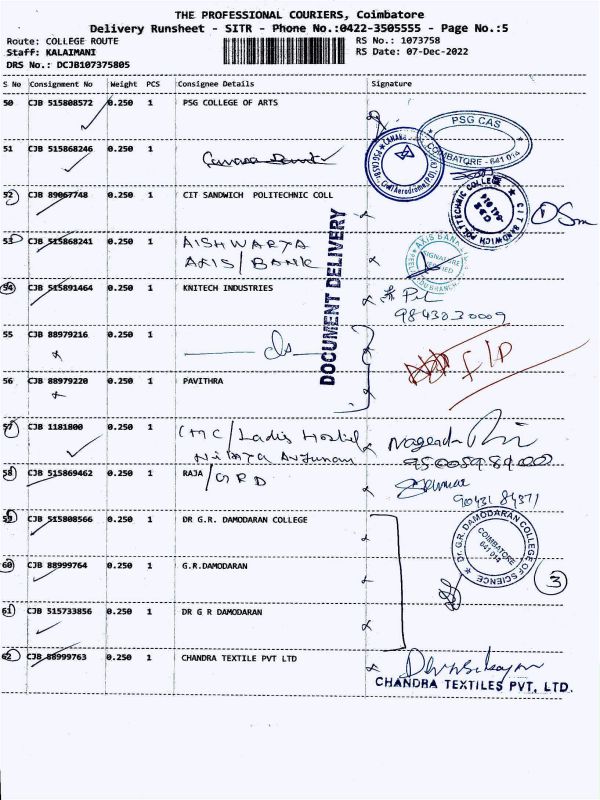 THE PROFESSIONAL COURIERS, Coimbatore
Delivery Runsheet - SITR - Phone No.:0422-3505555 - Page No.:5
Route: COLLEGE ROUTE
RS No.: 1073758
Staff: KALAIMANI
RS Date: 07-Dec-2022
DRS No.: DCJB107375805
S No Consignment No Weight PCS Consignee Details Signature
50 CJB 515808572 0.250 1 PSG COLLEGE OF ARTS
PSG CAS
COIMBATORE - 641 014
51 CJB 515868246 0.250 1
52 CJB 89067748 0.250 1 CIT SANDWICH POLYTECHNIC COLL
C I T SANDWICH POLYTECHNIC COLLEGE
53 CJB 515868241 0.250 1 AISHWARYA
AXIS/BANK
AXIS BANK
SIGNATURE
54 CJB 515891464 0.250 1 KNITECH INDUSTRIES
9843030009
DOCUMENT DELIVERY
55 CJB 88979216 0.250 1
56 CJB 88979220 0.250 1 PAVITHRA
57 CJB 1181800 0.250 1 CMC/Ladis Hostel
58 CJB 515869462 0.250 1 RAJA/GRD
59 CJB 515808566 0.250 1 DR G.R. DAMODARAN COLLEGE
Dr. G.R. DAMODARAN COLLEGE OF SCIENCE
COIMBATORE
641 014
60 CJB 88999764 0.250 1 G.R.DAMODARAN
3
61 CJB 515733856 0.250 1 DR G R DAMODARAN
62 CJB 88999763 0.250 1 CHANDRA TEXTILE PVT LTD
CHANDRA TEXTILES PVT. LTD.